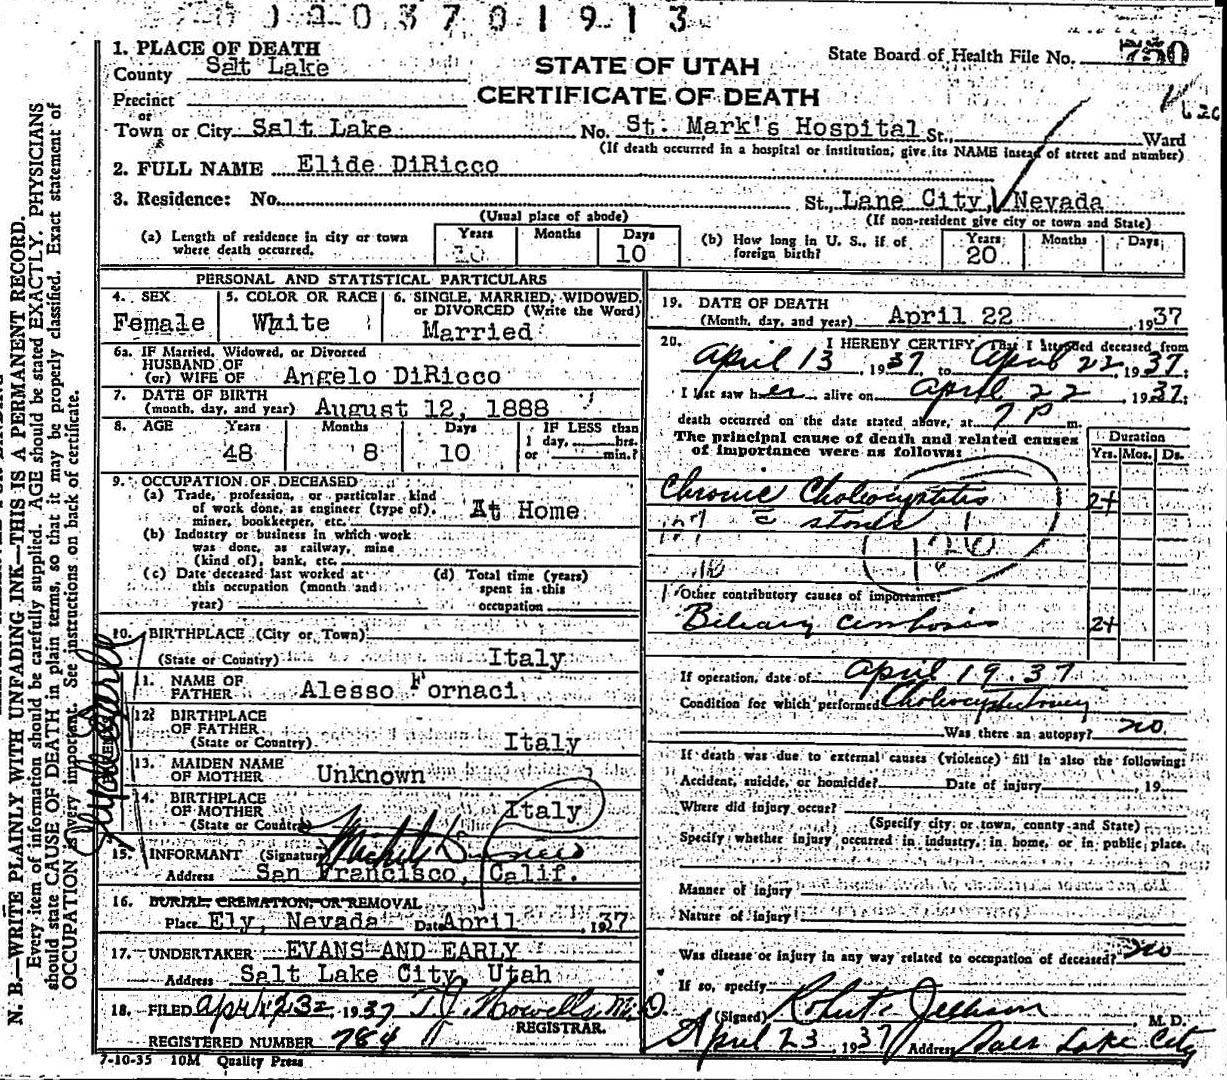 03701913
1. PLACE OF DEATH
County Salt Lake
STATE OF UTAH
CERTIFICATE OF DEATH
State Board of Health File No. 750
Precinct
or
Town or City Salt Lake No. St. Mark's Hospital St., Ward
(If death occurred in a hospital or institution, give its NAME instead of street and number)
2. FULL NAME Elide DiRicco
3. Residence: No. St., Lane City, Nevada
(Usual place of abode) (If non-resident give city or town and State)
(a) Length of residence in city or town where death occurred. Years Months Days 10
(b) How long in U. S., if of foreign birth? Years 20 Months Days
PERSONAL AND STATISTICAL PARTICULARS
4. SEX Female
5. COLOR OR RACE White
6. SINGLE, MARRIED, WIDOWED, or DIVORCED (Write the Word) Married
6a. IF Married, Widowed, or Divorced
HUSBAND OF
(or) WIFE OF Angelo DiRicco
7. DATE OF BIRTH
(month, day, and year) August 12, 1888
8. AGE Years 48 Months 8 Days 10 IF LESS than 1 day, hrs. or min.?
9. OCCUPATION OF DECEASED
(a) Trade, profession, or particular kind of work done, as engineer (type of), miner, bookkeeper, etc. At Home
(b) Industry or business in which work was done, as railway, mine (kind of), bank, etc.
(c) Date deceased last worked at this occupation (month and year)
(d) Total time (years) spent in this occupation
10. BIRTHPLACE (City or Town)
(State or Country) Italy
11. NAME OF FATHER Alesso Fornaci
12. BIRTHPLACE OF FATHER
(State or Country) Italy
13. MAIDEN NAME OF MOTHER Unknown
14. BIRTHPLACE OF MOTHER
(State or Country) Italy
15. INFORMANT (Signature)
Address San Francisco, Calif.
16. BURIAL, CREMATION, OR REMOVAL
Place Ely, Nevada Date April , 1937
17. UNDERTAKER EVANS AND EARLY
Address Salt Lake City, Utah
18. FILED April 23 1937 T. J. Howells, M.D.
REGISTRAR.
REGISTERED NUMBER 784
7-10-35 10M Quality Press
19. DATE OF DEATH
(Month, day, and year) April 22 , 1937
20. I HEREBY CERTIFY, That I attended deceased from
April 13 , 1937, to April 22 , 1937;
I last saw her alive on April 22 , 1937;
death occurred on the date stated above, at 7 P m.
The principal cause of death and related causes of importance were as follows:
Duration
Yrs. Mos. Ds.
Chronic Cholecystitis 2+
c stones
126
Other contributory causes of importance:
Biliary cirrhosis 2+
If operation, date of April 19. 37
Condition for which performed Cholecystectomy
Was there an autopsy? no
If death was due to external causes (violence) fill in also the following:
Accident, suicide, or homicide? Date of injury , 19
Where did injury occur?
(Specify city or town, county and State)
Specify whether injury occurred in industry, in home, or in public place.
Manner of injury
Nature of injury
Was disease or injury in any way related to occupation of deceased? no
If so, specify
(Signed) Robert Jellison M. D.
April 23 , 1937 Address Salt Lake City
N. B.—WRITE PLAINLY WITH UNFADING INK—THIS IS A PERMANENT RECORD.
Every item of information should be carefully supplied. AGE should be stated EXACTLY. PHYSICIANS
should state CAUSE OF DEATH in plain terms, so that it may be properly classified. Exact statement of
OCCUPATION is very important. See instructions on back of certificate.